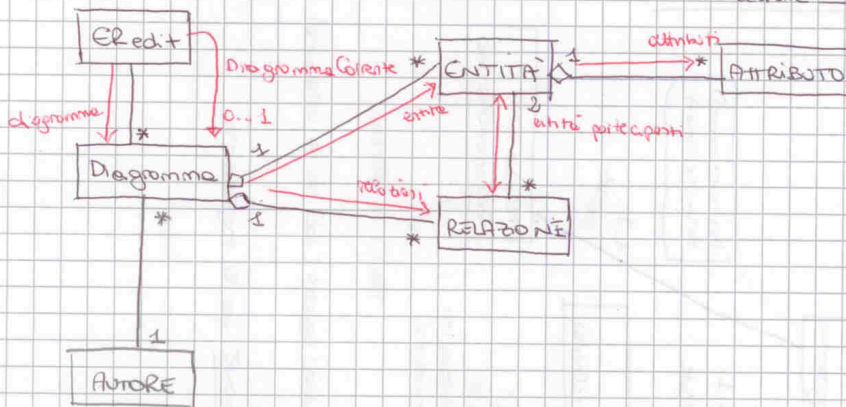 ERedit
Diagramma Corrente
*
ENTITÀ
1
attributi
*
ATTRIBUTO
diagramma
0...1
*
entità
2
entità partecipanti
1
Diagramma
relazioni
*
*
1
*
RELAZIONE
1
AUTORE